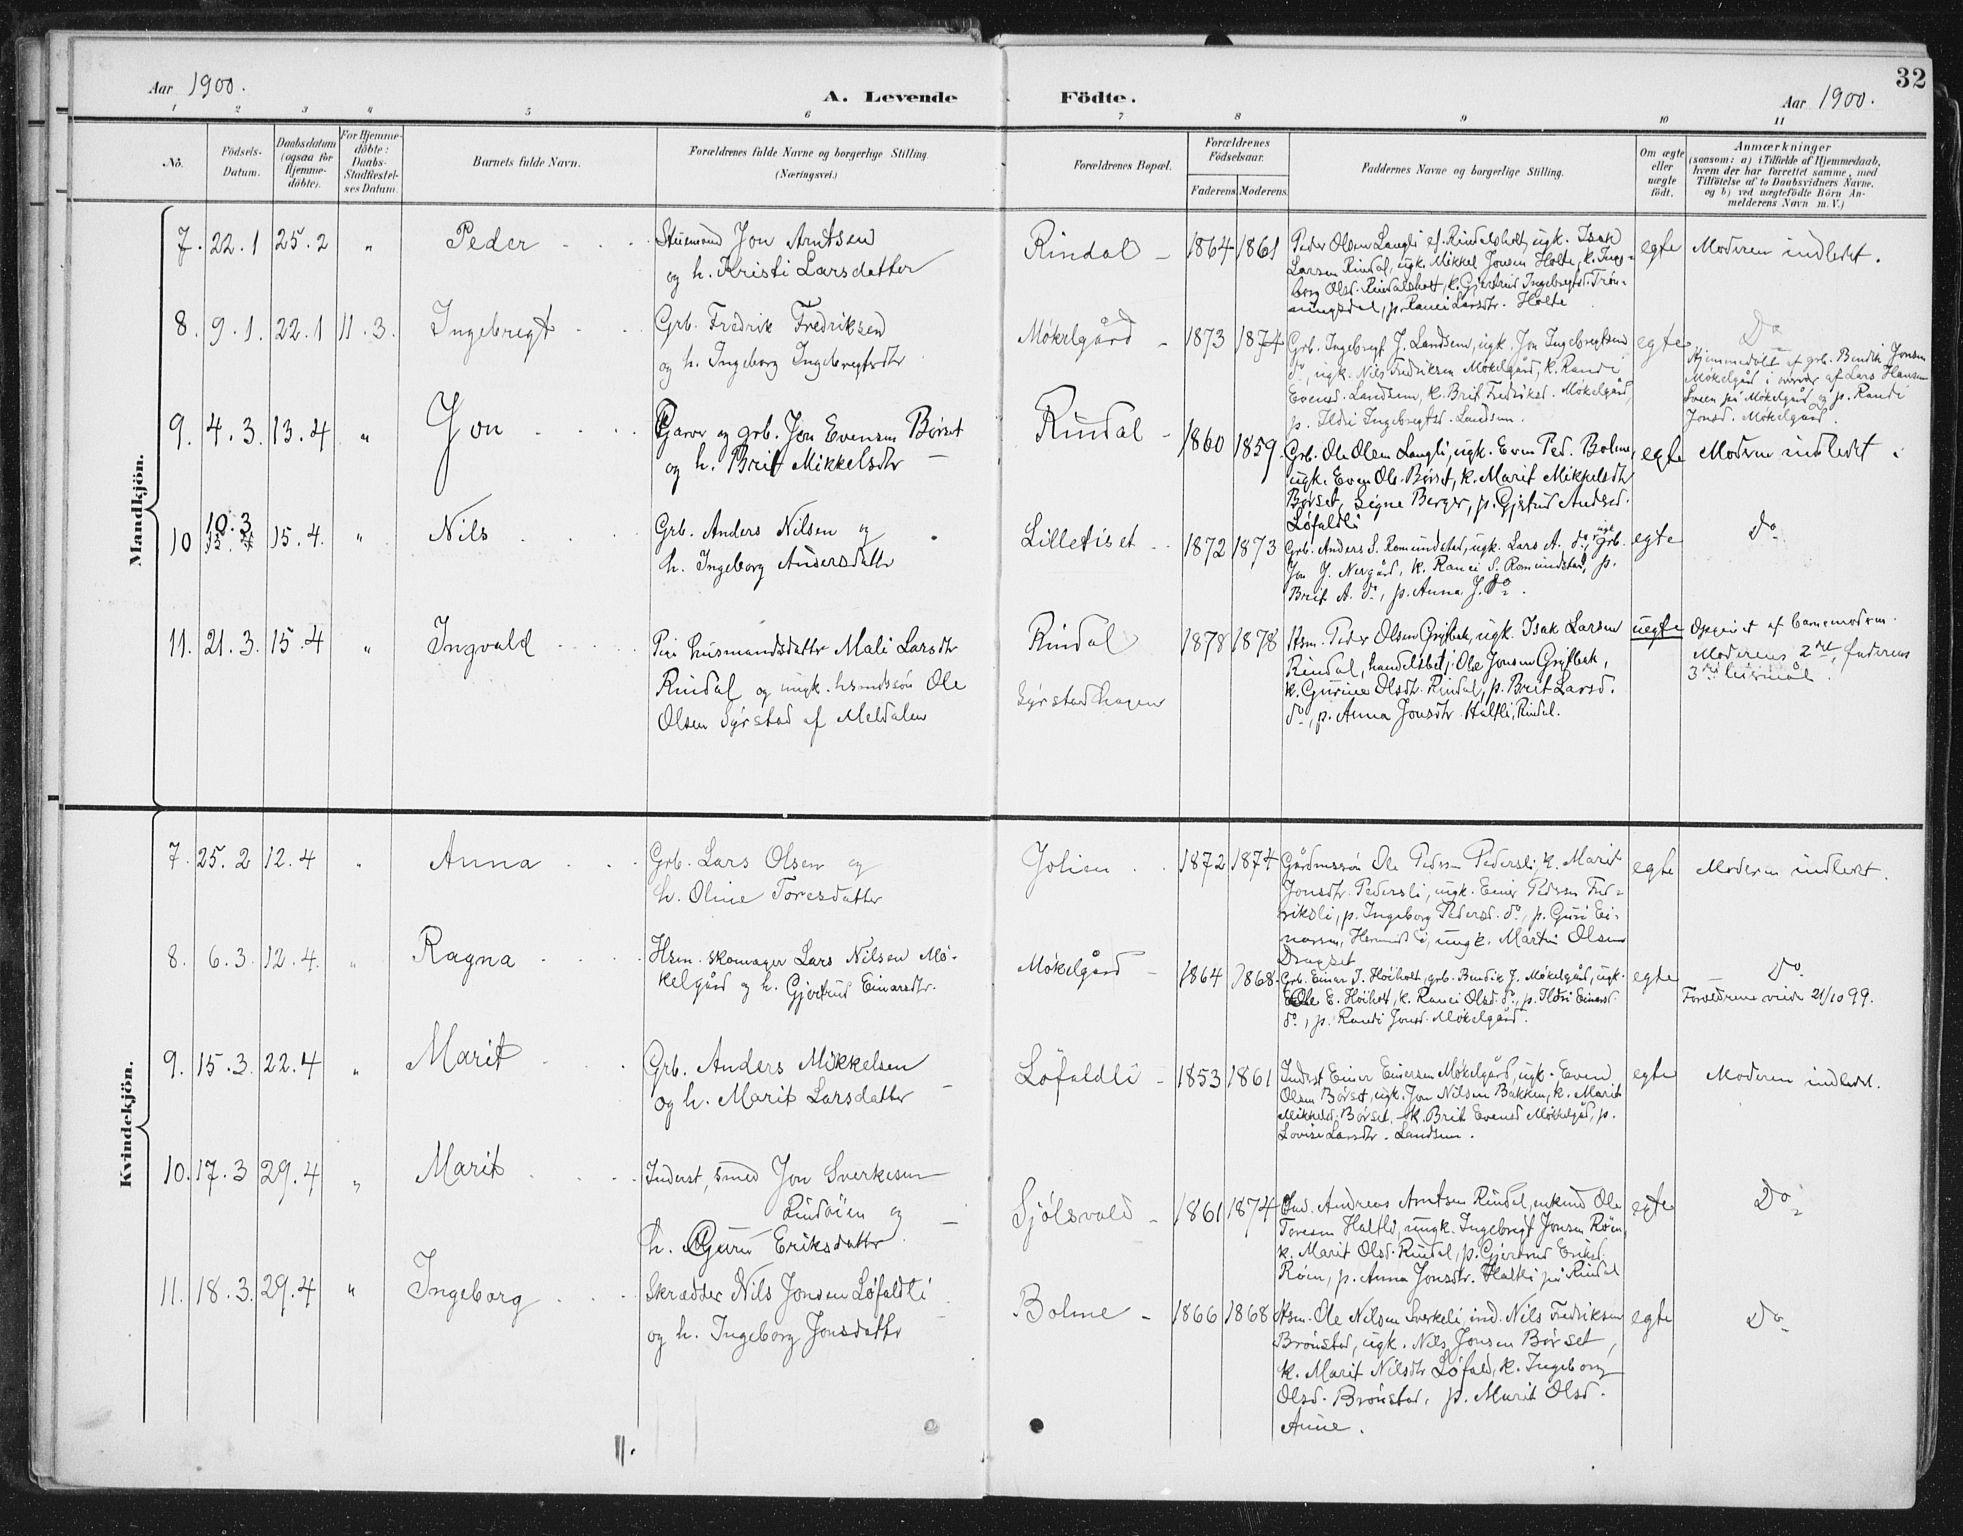 32
Aar 1900. A. Levende Födte. Aar 1900.
1 2 3 4 5 6 7 8 9 10 11
No. Födsels-Datum. Daabsdatum (ogsaa for Hjemme-døbte). For Hjemme-døbte: Daabs-Stadfæstel-ses Datum. Barnets fulde Navn. Forældrenes fulde Navne og borgerlige Stilling. (Næringsvei.) Forældrenes Bopæl. Forældrenes Födselsaar. Faderens Moderens Faddernes Navne og borgerlige Stilling. Om ægte eller uægte födt. Anmærkninger
(saasom: a) i Tilfælde af Hjemmedaab, hvem der har forrettet samme, med Tilföielse af to Daabsvidners Navne, og b) ved uægtefödte Börn An-melderens Navn m. V.)
Mandkjön.
7. 22.1 25.2 " Peder
Jon Arntsen
og h. Kristi Larsdatter
Rindal 1864 1861
Peder Olsen Langli af Rindalsholt, ugk. Isak
Larsen Rindal, ugk. Mikkel Jonsen Holte, k. Inge-
borg Olsd. Rindalsholt, k. Gjertrud Ingebrigtsd. Trøn-
ningsdal, p. Ranei Larsdtr. Holte
egte Moderen indledet.
8. 9.1. 22.1 11.3. Ingebrigt
Grb. Fredrik Fredriksen
og h. Ingeborg Ingebrigtsdtr
Møkelgård 1873 1874
Grb. Ingebrigt J. Landsem, ugk. Jon Ingebrigtsen
do, ugk. Nils Fredriksen Møkelgård, k. Randi
Evensd. Landsem, k. Brit Fredriksd. Møkelgård,
p. Ildri Ingebrigtsd. Landsem.
egte Do
Hjemmedøbt af grb. Bendik Jonsen
Møkelgård i nærvær af Lars Hansen
Sveen på Møkelgård og p. Randi
Jonsd. Møkelgård.
9. 4.3. 13.4 " Jon
Garver og grb. Jon Evensen Børset
og h. Brit Mikkelsdtr
Rindal 1860 1859
Grb. Ole Olsen Langli, ugk. Even Ped. Bolme,
ugk. Even Ols. Børset, k. Marit Mikkelsdtr
Børset, Signe Berger, p. Gjertrud Andersd.
Løfaldli
egte Moderen indledet
10 10.3 15.4. " Nils
Grb. Anders Nilsen og
h. Ingeborg Andersdatter
Lilletiset 1872 1873
Grb. Anders S. Romundstad, ugk. Lars A. do, grb.
Jon J. Nergård, k. Ranei S. Romundstad, p.
Brit A. do, p. Anna J. do.
egte Do
11. 21.3. 15.4 " Ingvald
Pige husmandsdatter Mali Larsdtr
Rindal og ungk. Ole
Olsen Syrstad af Meldalen
Rindal
Syrstadhagen
1878 1878
Hsm. Peder Olsen Grytbak, ugk. Isak Larsen
Rindal, handelsbetj. Ole Jonsen Grytbak,
k. Gurine Olsdtr. Rindal, p. Brit Larsd.
do, p. Anna Jonsdtr Haltli, Rindal.
uegte Opgivet af barnemoderen.
Moderens 2det, faderens
3die leiermål.
Kvindekjön.
7. 25.2 12.4 " Anna
Grb. Lars Olsen og
h. Oline Toresdatter
Jolien 1872 1874
Gårdmssøn Ole Pedersen Pedersli, k. Marit
Jonsdtr. Pedersli, ungk. Einer Pedersen Fred-
riksli, p. Ingeborg Pedersd. do, p. Guri Ei-
ungk. Martin Olsen
Dragset
egte Moderen indledet.
8. 6.3. 12.4. " Ragna
Hsm. skomager Lars Nilsen Mø-
kelgård og h. Gjertrud Einarsdtr.
Møkelgård 1864 1868
Grb. Einar I. Høiholt, grb. Bendik J. Møkelgård, ugk.
Ole E. Høiholt, k. Ranei Olsd. do, p. Ildri Einarsd.
do, p. Randi Jonsd. Møkelgård.
egte Do
Forældrene viede 21/10 99.
9. 15.3. 22.4 " Marit
Grb. Anders Mikkelsen
og h. Marit Larsdatter
Løfaldli 1853 1861
Inderst Einer Einersen Møkelgård, ugk. Even
Olsen Børset, ugk. Jon Nilsen Bakken, k. Marit
Mikkelsd. Børset, k. Brit Evensd Møkkelgård, p.
Lovise Larsdtr. Landsem.
egte Moderen indledet.
10. 17.3 29.4 " Marit
Inderst, smed Jon Sverkesen
Rindøien og
h. Guru Eriksdatter
Sjølsvold 1861 1874
Ind. Andreas Arntsen Rindal, enkmd Ole
Toresen Haltli, ungk. Ingebrigt Jonsen Røen,
k. Marit Olsd. Rindal, p. Gjertrud Eriksd.
Røen, p. Anna Jonsdtr. Haltli på Rindal
egte Do
11. 18.3. 29.4 " Ingeborg
Skrædder Nils Jonsen Løfaldli
og h. Ingeborg Jonsdatter
Bolme 1866 1868
Hsm. Ole Nilsen Sverkeli, ind. Nils Fredriksen
Brønstad, ugk. Nils Jonsen Børset,
k. Marit Nilsdtr Løfald, k. Ingeborg
Olsd. Brønstad, p. Marit Olsd.
Aune.
egte Do
11.